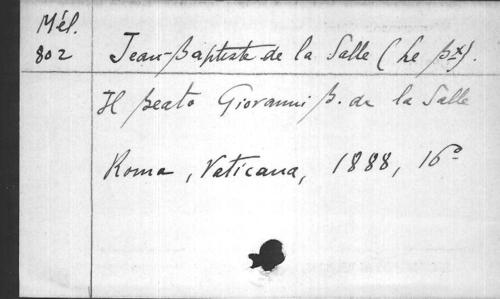 Mél.
802
Jean-Baptiste de la Salle (Le Bx).
Il Beato Giovanni B. de la Salle
Roma, Vaticana, 1888, 16°